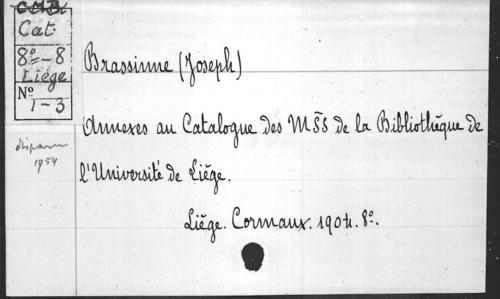 C.M.B.
Cat.
8º-8
Liége
Nº
1-3
disparu
1954
Brassinne (Joseph)
Annexes au Catalogue des MSS de la Bibliothèque de
l'Université de Liége.
Liége. Cormaux. 1904. 8º.